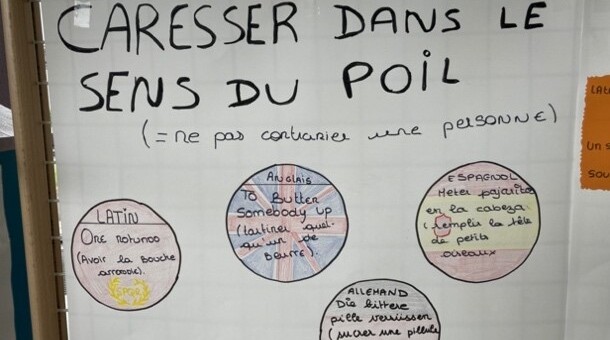 CARESSER DANS LE
SENS DU POIL
(= ne pas contrarier une personne)
LATIN
Ore rotundo
(Avoir la bouche
arrondie).
SPQR
ANGLAIS
To Butter
Somebody up
(tartiner quel-
qu'un de
beurre).
ESPAGNOL
Meter pajaritos
en la cabeza
(remplir la tête
de petits
oiseaux
ALLEMAND
Die bittere
pille versüssen
(sucrer une pillule
LAT
Un s
sou